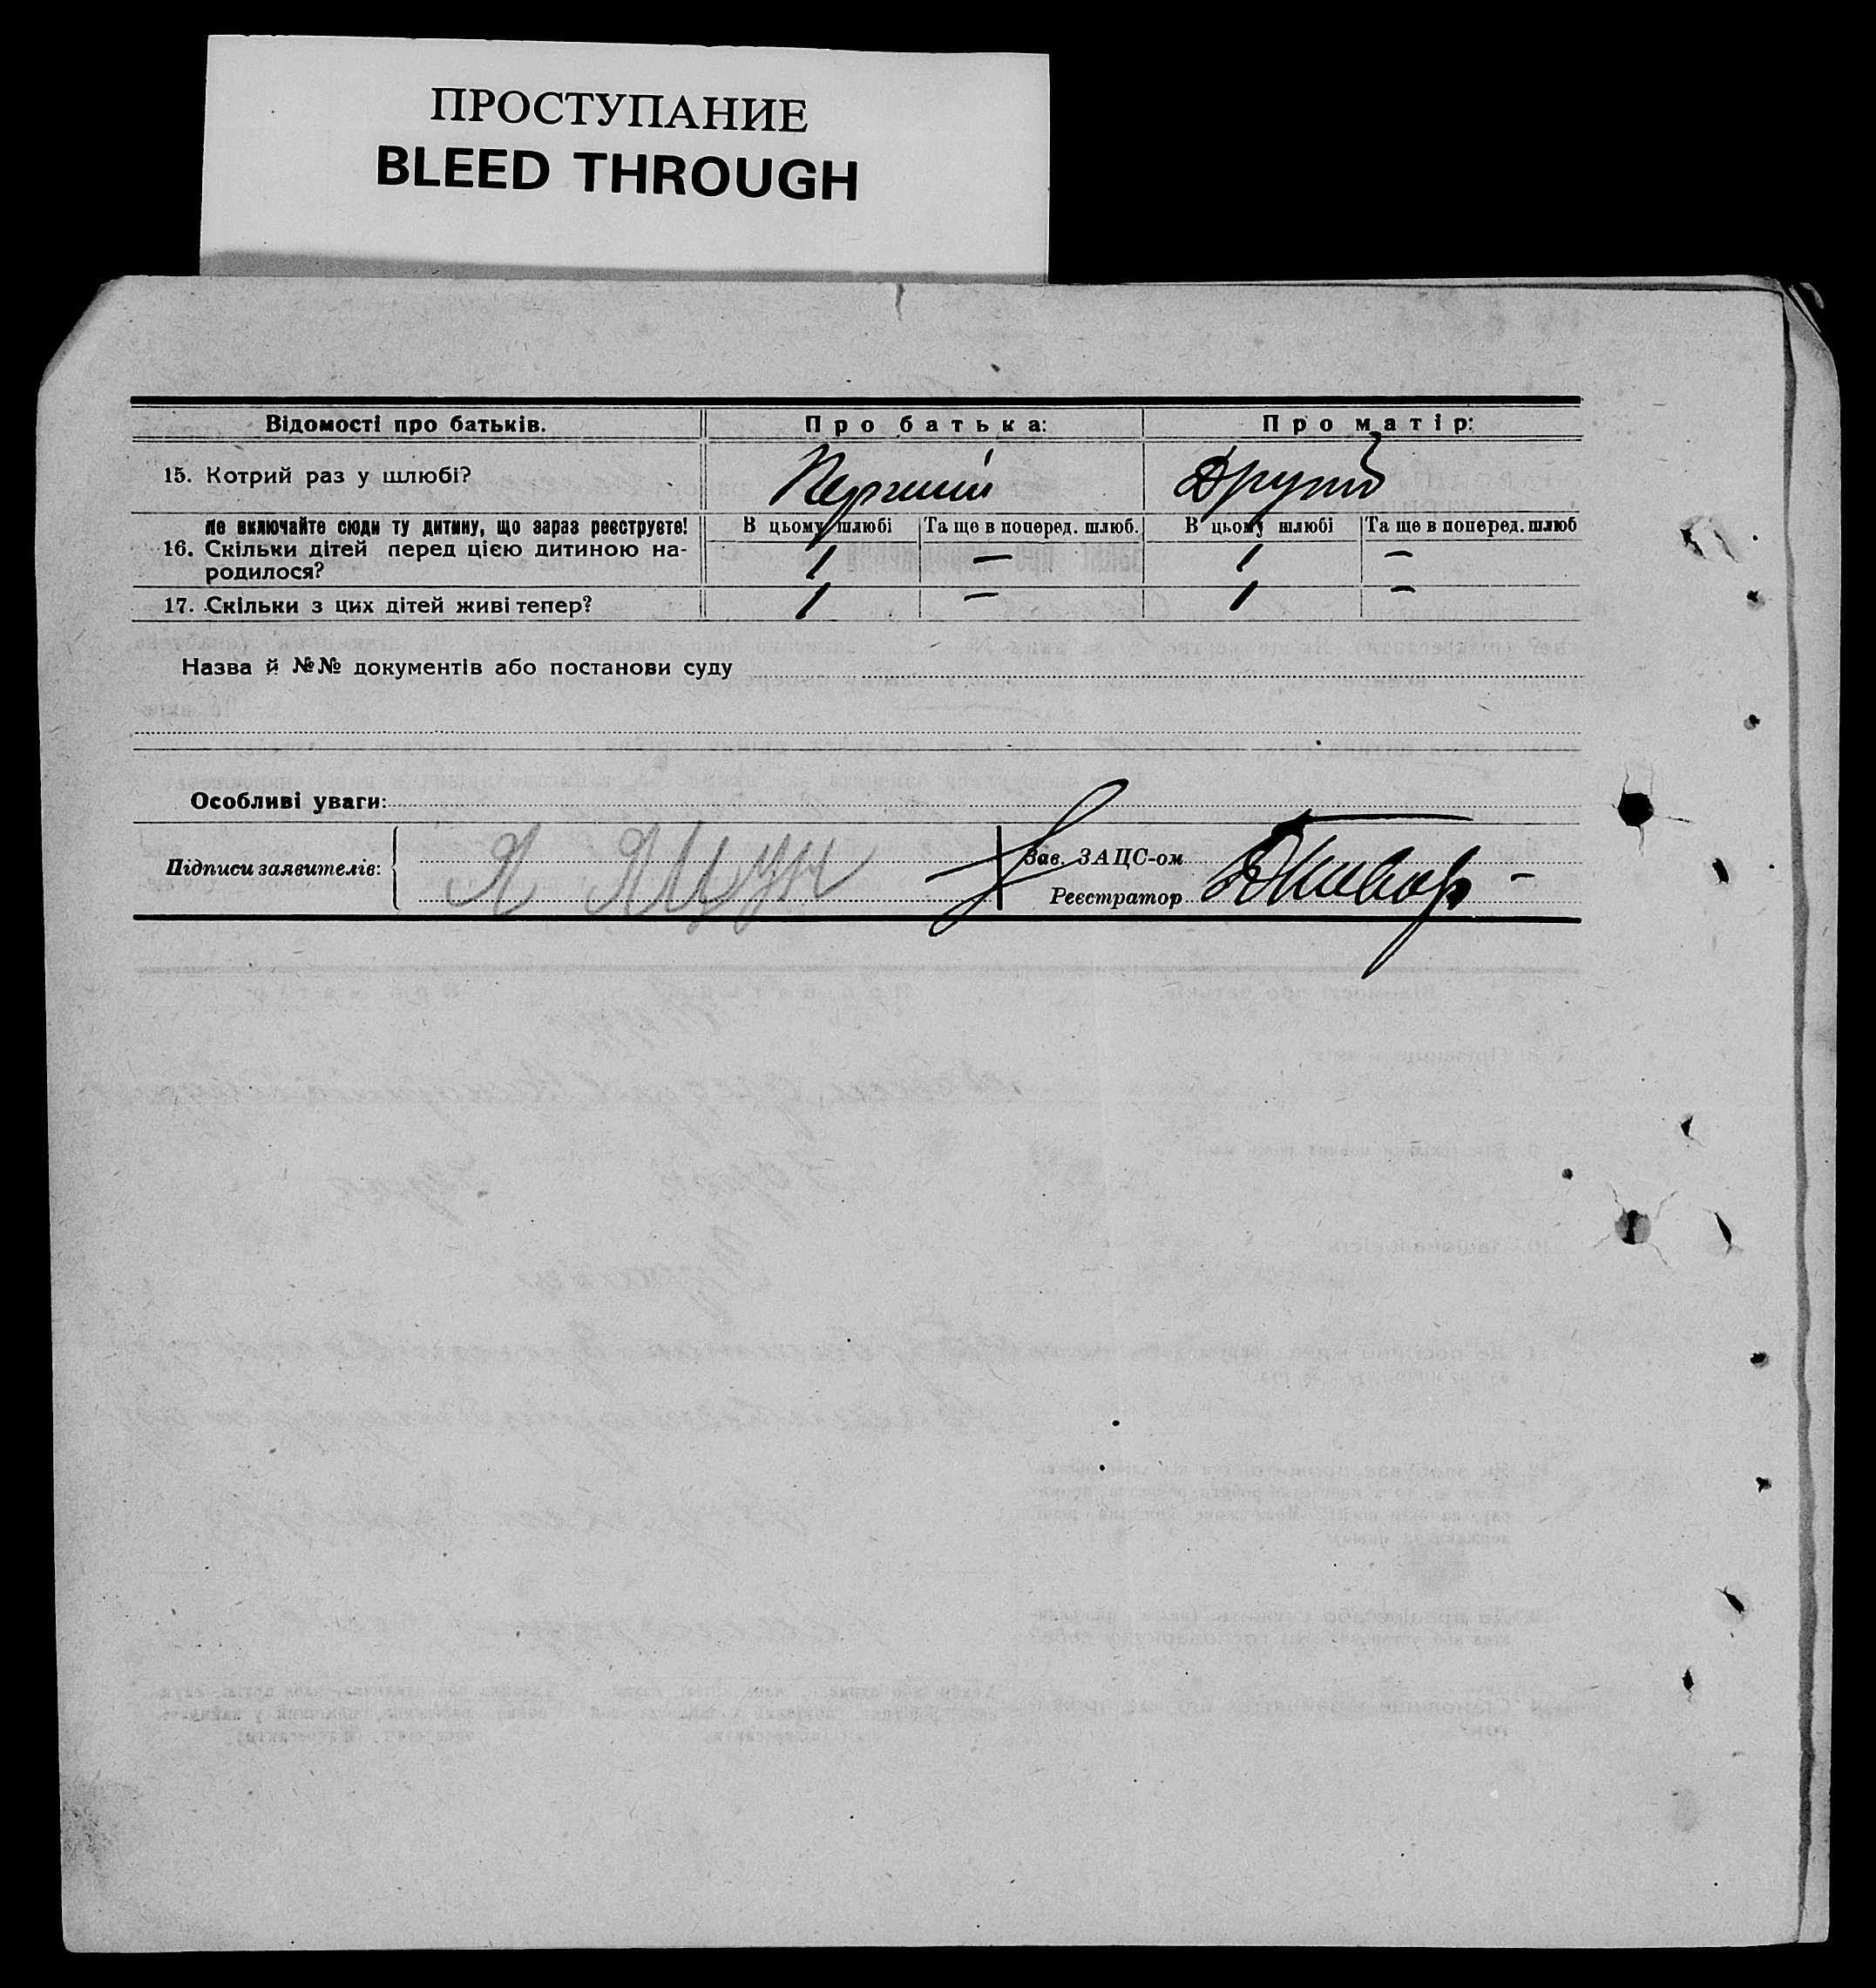 ПРОСТУПАНИЕ
BLEED THROUGH
Відомості про батьків. Про батька: Про матір:
15. Котрий раз у шлюбі? Перший Другий
Не включайте сюди ту дитину, що зараз реєструєте! В цьому шлюбі Та ще в поперед. шлюб. В цьому шлюбі Та ще в поперед. шлюб
16. Скільки дітей перед цією дитиною на-
родилося? 1 — 1 —
17. Скільки з цих дітей живі тепер? 1 — 1 —
Назва й №№ документів або постанови суду
Особливі уваги:
Підписи заявителів: Я Яцун
Зав. ЗАЦС-ом
Реєстратор